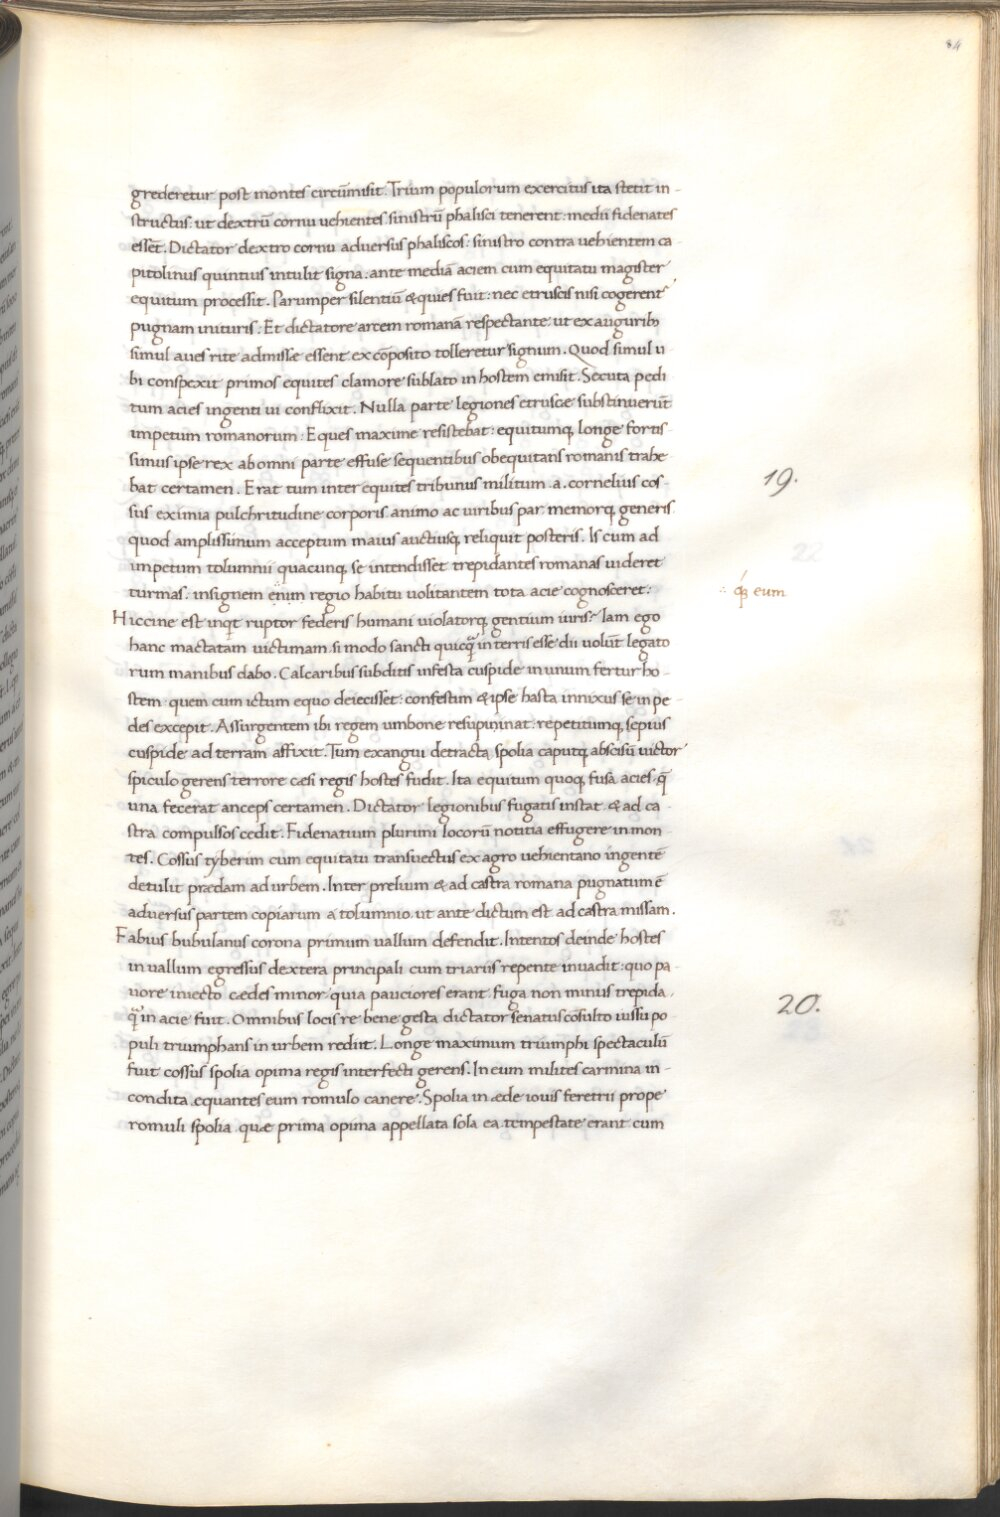 84
grederetur post montes circūmisit. Trium populorum exercitus ita stetit in-
structus: ut dextrū cornu uehientes: sinistrū phalisci tenerent: medii fidenates
essēt. Dictator dextro cornu aduersus phaliscos: sinistro contra uehientem ca
pitolinus quintius intulit signa. ante mediā aciem cum equitatu magister
equitum processit. Parumper silentiū & quies fuit: nec etruscis nisi cogerent᷑
pugnam inituris: Et dictatore arcem romanā respectante ut ex augurib;
simul aues rite admissæ essent ex cōposito tolleretur signum. Quod simul u
bi conspexit primos equites clamore sublato in hostem emisit. Secuta pedi
tum acies ingenti ui conflixit. Nulla parte legiones etruscæ substinuerūt
impetum romanorum: Eques maxime resistebat: equitumq; longe fortis
simus ipse rex ab omni parte effuse sequentibus obequitans romanis trahe
bat certamen. Erat tum inter equites tribunus militum .a. cornelius cos-
19.
sus eximia pulchritudine corporis animo ac uiribus par memorq; generis
quod amplissimum acceptum maius auctiusq; reliquit posteris. Is cum ad
impetum tolumnii quacunq; se intendisset trepidantes romanas uideret
turmas: insignem enim regio habitu uolitantem tota acie cognosceret:
q; eum
Hiccine est inqt ruptor federis humani uiolatorq; gentium iuris? Iam ego
hanc mactatam uictimam si modo sancti quicq̄ in terris esse dii volūt legato
rum manibus dabo. Calcaribus subditis infesta cuspide in unum fertur ho-
stem: quem cum ictum equo deiecisset: confestim & ipse hasta innixus se in pe
des excepit. Assurgentem ibi regem umbone resupininat: repetitumq; sepius
cuspide ad terram affixit. Tum exangui detracta spolia caputq; abscisū uictor
spiculo gerens terrore cæsi regis hostes fudit. Ita equitum quoq; fusa acies: q̄
una fecerat anceps certamen. Dictator legionibus fugatis instat & ad ca
stra compulsos cedit. Fidenatium plurimi locorū notitia effugere in mon
tes. Cossus tyberim cum equitatu transuectus ex agro uehientano ingentē
detulit prædam ad urbem. Inter prelium & ad castra romana pugnatum ē
aduersus partem copiarum a tolumnio ut ante dictum est ad castra missam.
Fabius bubulanus corona primum uallum defendit. Intentos deinde hostes
in uallum egressus dextera principali cum triariis repente inuadit: quo pa
uore iniecto cædes minor quia pauciores erant fuga non minus trepida
20.
q̄ in acie fuit. Omnibus locis re bene gesta dictator senatus cōsulto iussu po
puli triumphans in urbem rediit. Longe maximum triumphi spectaculū
fuit cossus spolia opima regis interfecti gerens. In eum milites carmina in-
condita æquantes eum romulo canere. Spolia in æde iouis feretrii prope
romuli spolia quæ prima opima appellata sola ea tempestate erant cum